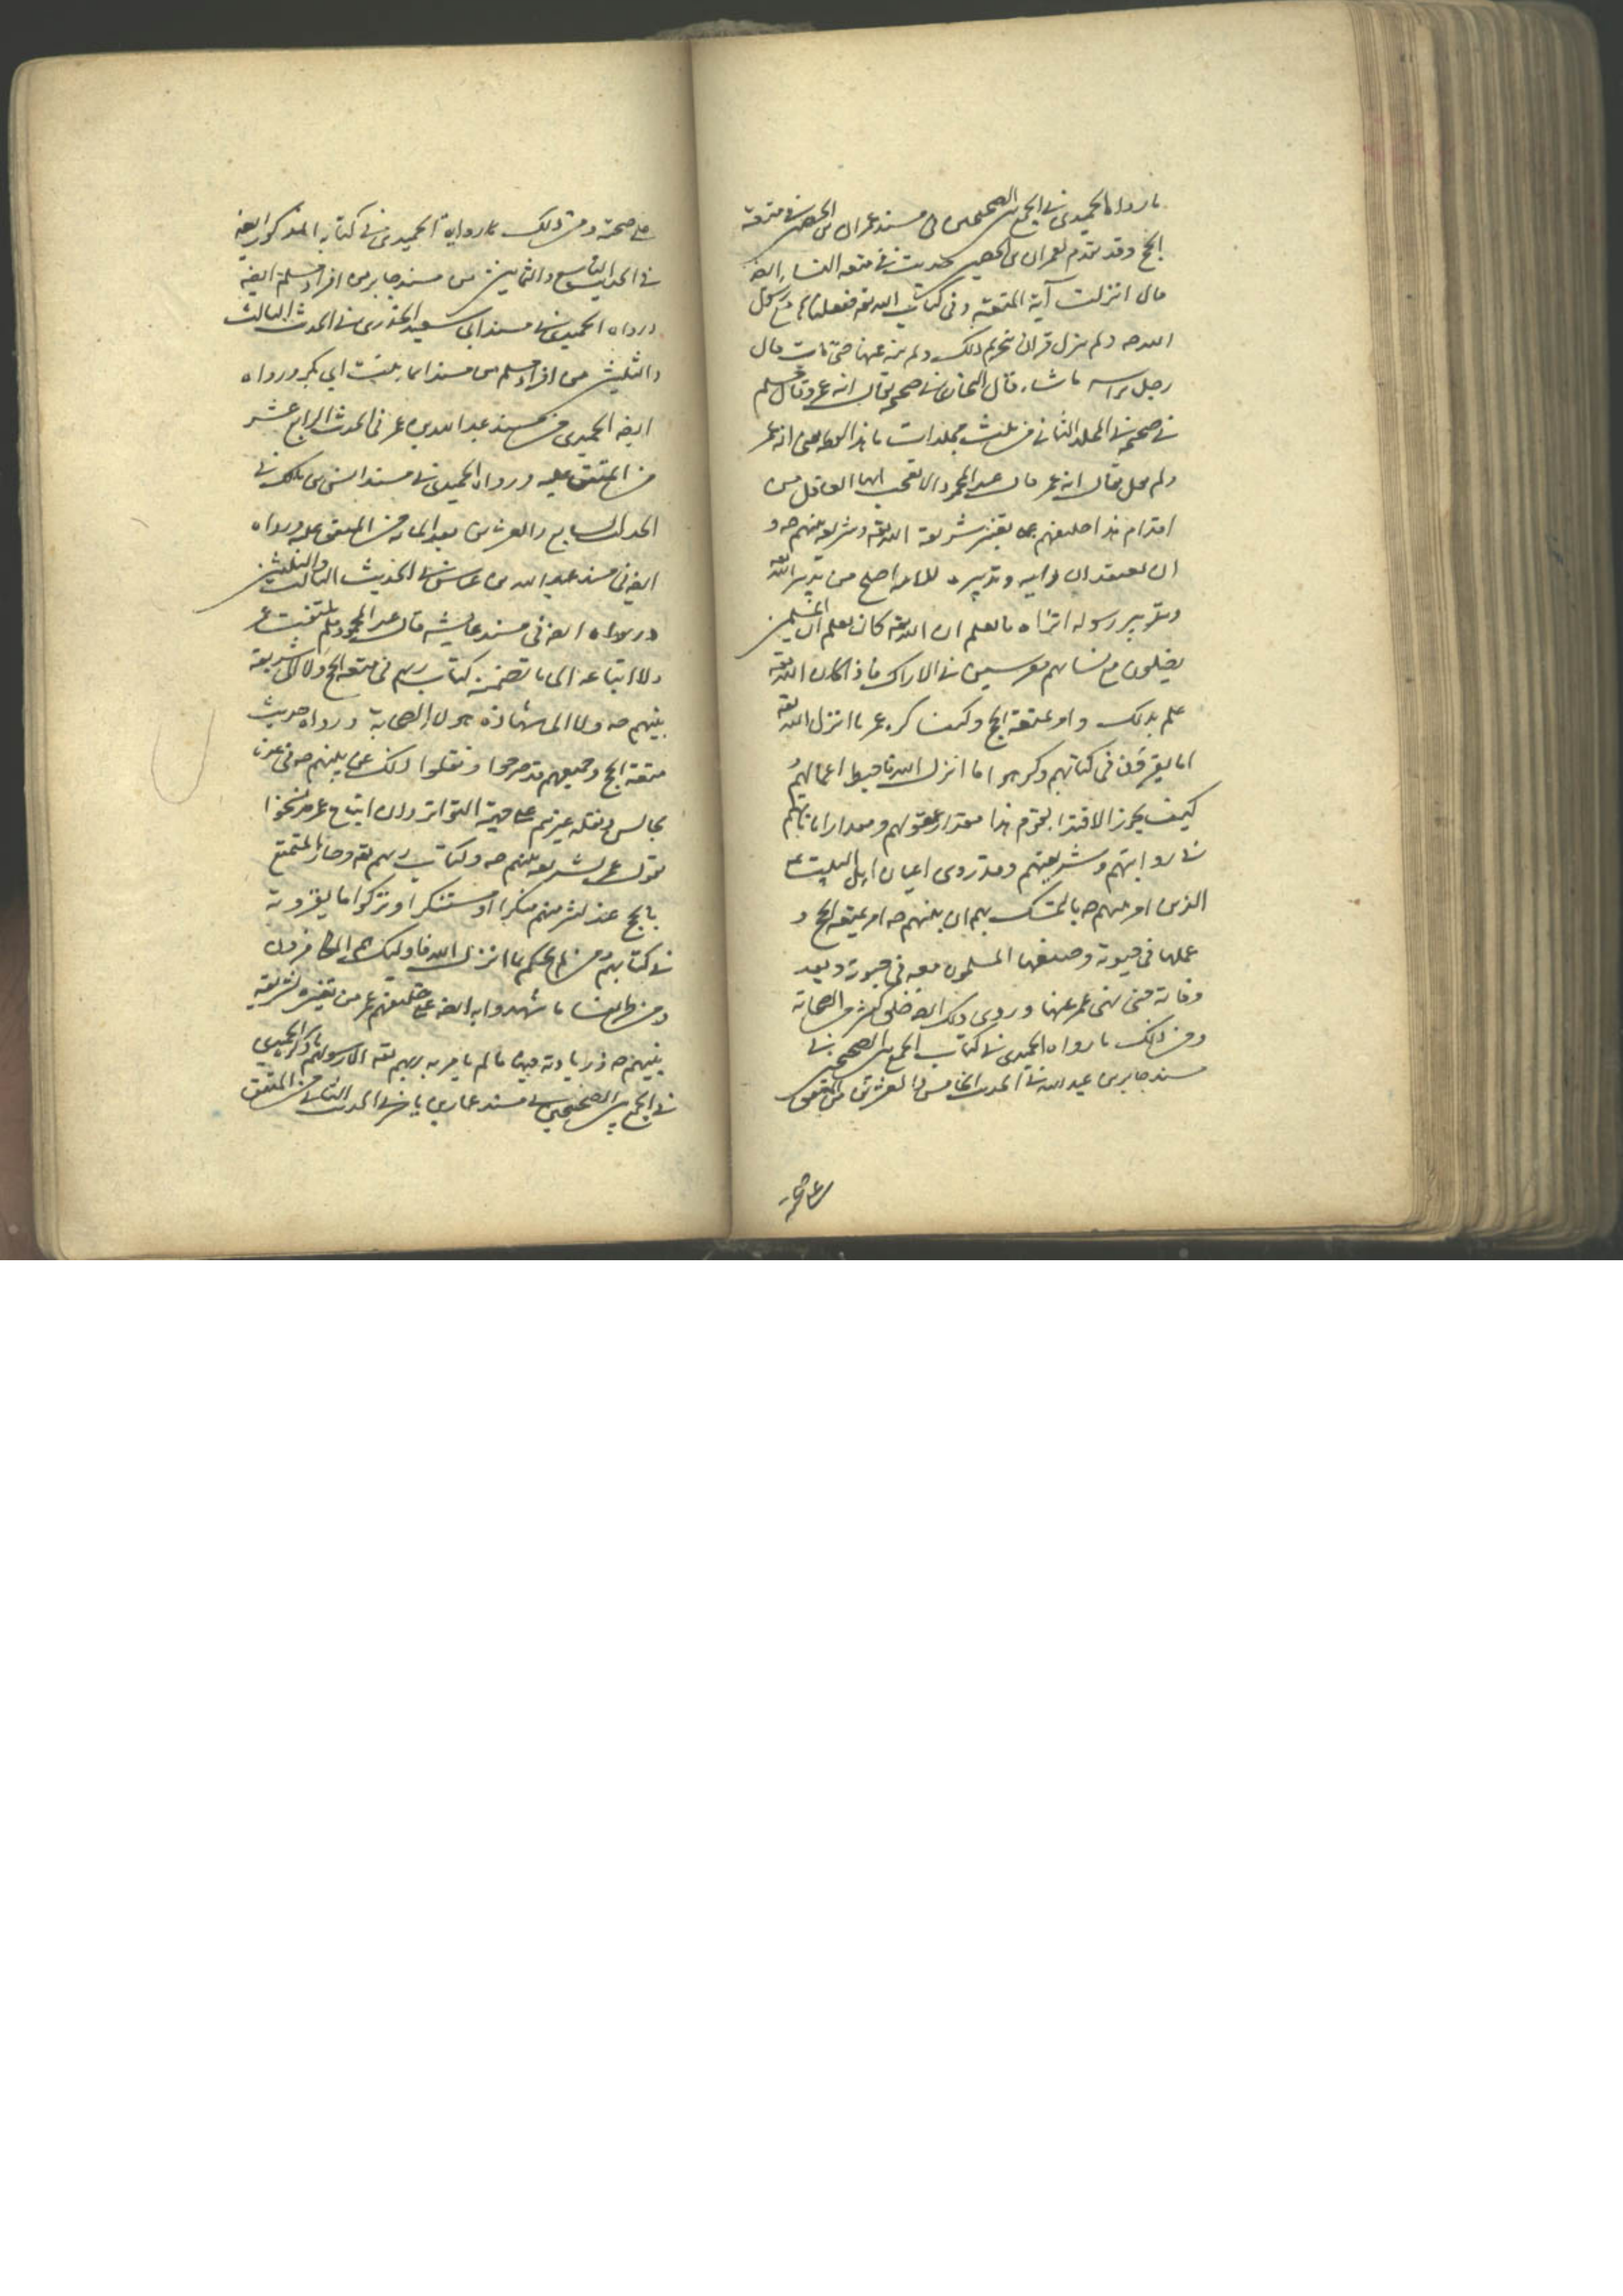 ما رواه الحميدى فى الجمع بين الصحيحين فى مسند عمران بن الحصين فى متعة
الحج وقد تقدم لعمران بن الحصين حديث فى متعه النساء ايضه
قال انزلت آية المتعة فى كتاب الله تعه ففعلناها مع رسول
الله صه ولم ينزل قران بتحريم ذلك ولم ينه عنها حتى مات قال
رجل برايه ما شاء قال البخارى فى صحيحه يقال انه عمر وقال مسلم
فى صحيحه فى المجلد الثانى من ثلث مجلدات ما هذا لفظه يعنى انه عمر
ولم يقل يقال انه عمر قال عبد المحمود الا تعجب ايها العاقل من
اقدام هذا خليفتهم على تغيير شريعة الله تعه وشريعه نبيهم صه و
ان يعتقد ان رايه وتدبيره للامه اصلح من تدبير الله تعه
وتدبير رسوله اتراه ما يعلم ان الله تعه كان يعلم ان المسلمين
يضلون مع نسائهم معرسين فى الاراك فاذا كان الله تعه
علم بذلك وامر بمتعه الحج وكيف كره عمر ما انزل الله تعه
اما يقرؤن فى كتابهم وكرهوا ما انزل الله فاحبط اعمالهم
كيف يجوز الاقتدا بقوم هذا مقدار عقولهم ومقدار اماناتهم
فى رواياتهم وشريعتهم وقد روى اعيان اهل البيت عه
الذين امر نبيهم صه بالتمسك بهم ان نبيهم صه امر بمتعه الحج و
عملها فى حيوته وصنعها المسلمون معه فى حيوته وبعد
وفاته حتى نهى عمر عنها وروى ذلك ايضه خلق كثير من الصحابة
ومن ذلك ما رواه الحميدى فى كتاب الجمع بين الصحيحين فى
مسند جابر بن عبد الله فى الحديث الخامس والعشرين من المتفق
على صحته
على صحته ومن ذلك ما رواه الحميدى فى كتابه المذكور ايضه
فى الحديث التاسع والثمانين من مسند جابر من افراد مسلم ايضه
ورواه الحميدى فى مسند ابى سعيد الخدرى فى الحديث الثالث
والثلثين من افراد مسلم من مسند اسماء بنت ابى بكر ورواه
ايضه الحميدى من مسند عبد الله بن عمر فى الحديث الرابع عشر
من المتفق عليه ورواه الحميدى فى مسند انس بن مالك فى
الحديث السابع والعشرين بعد المائه من المتفق عليه ورواه
ايضه فى مسند عبد الله بن عباس فى الحديث الثالث والثلثين
ورواه ايضه فى مسند عايشه قال عبد المحمود فلم يلتفت عمر
ولا اتباعه الى ما تضمنه كتاب ربهم فى متعه الحج ولا الى شريعة
نبيهم صه ولا الى شهادة هولاء الصحابة ورواه حديث
متعة الحج وجميعهم قد صرحوا ونقلوا ذلك عن نبيهم صه فى عدة
مجالس ونقله غيرهم على جهة التواتر وان اتباع عمر نسخوا
بقول عمر شريعه نبيهم صه وكتاب ربهم تعه وصار المتمتع
بالحج عند كثير منهم منكرا او مستنكرا وتركوا ما يقرونه
فى كتابهم من لم يحكم بما انزل الله فاولئك هم الكافرون
ومن طرايف ما شهدوا به ايضه على خليفتهم عمر من تغييره لشريعة
نبيهم صه وزيادته فيها ما لم يامر به ربهم تعه ولا رسولهم ما ذكره الحميدى
فى الجمع بين الصحيحين فى مسند عمار بن ياسر فى الحديث الثانى من المتفق